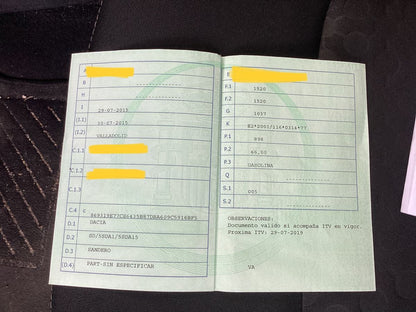 A
B
H
I 29-07-2015
(I.1) 30-07-2015
(I.2) VALLADOLID
C.1.1
C.1.2
C.1.3
C.4
D.1 DACIA
D.2 SD/5SDA1/5SDA15
D.3 SANDERO
(D.4) PART-SIN ESPECIFICAR
E
F.1 1520
F.2 1520
G 1037
K E2*2001/116*0314*77
P.1 898
P.2 66,00
P.3 GASOLINA
Q
S.1 005
S.2
OBSERVACIONES:
Documento valido si acompaña ITV en vigor.
Proxima ITV: 29-07-2019
VA